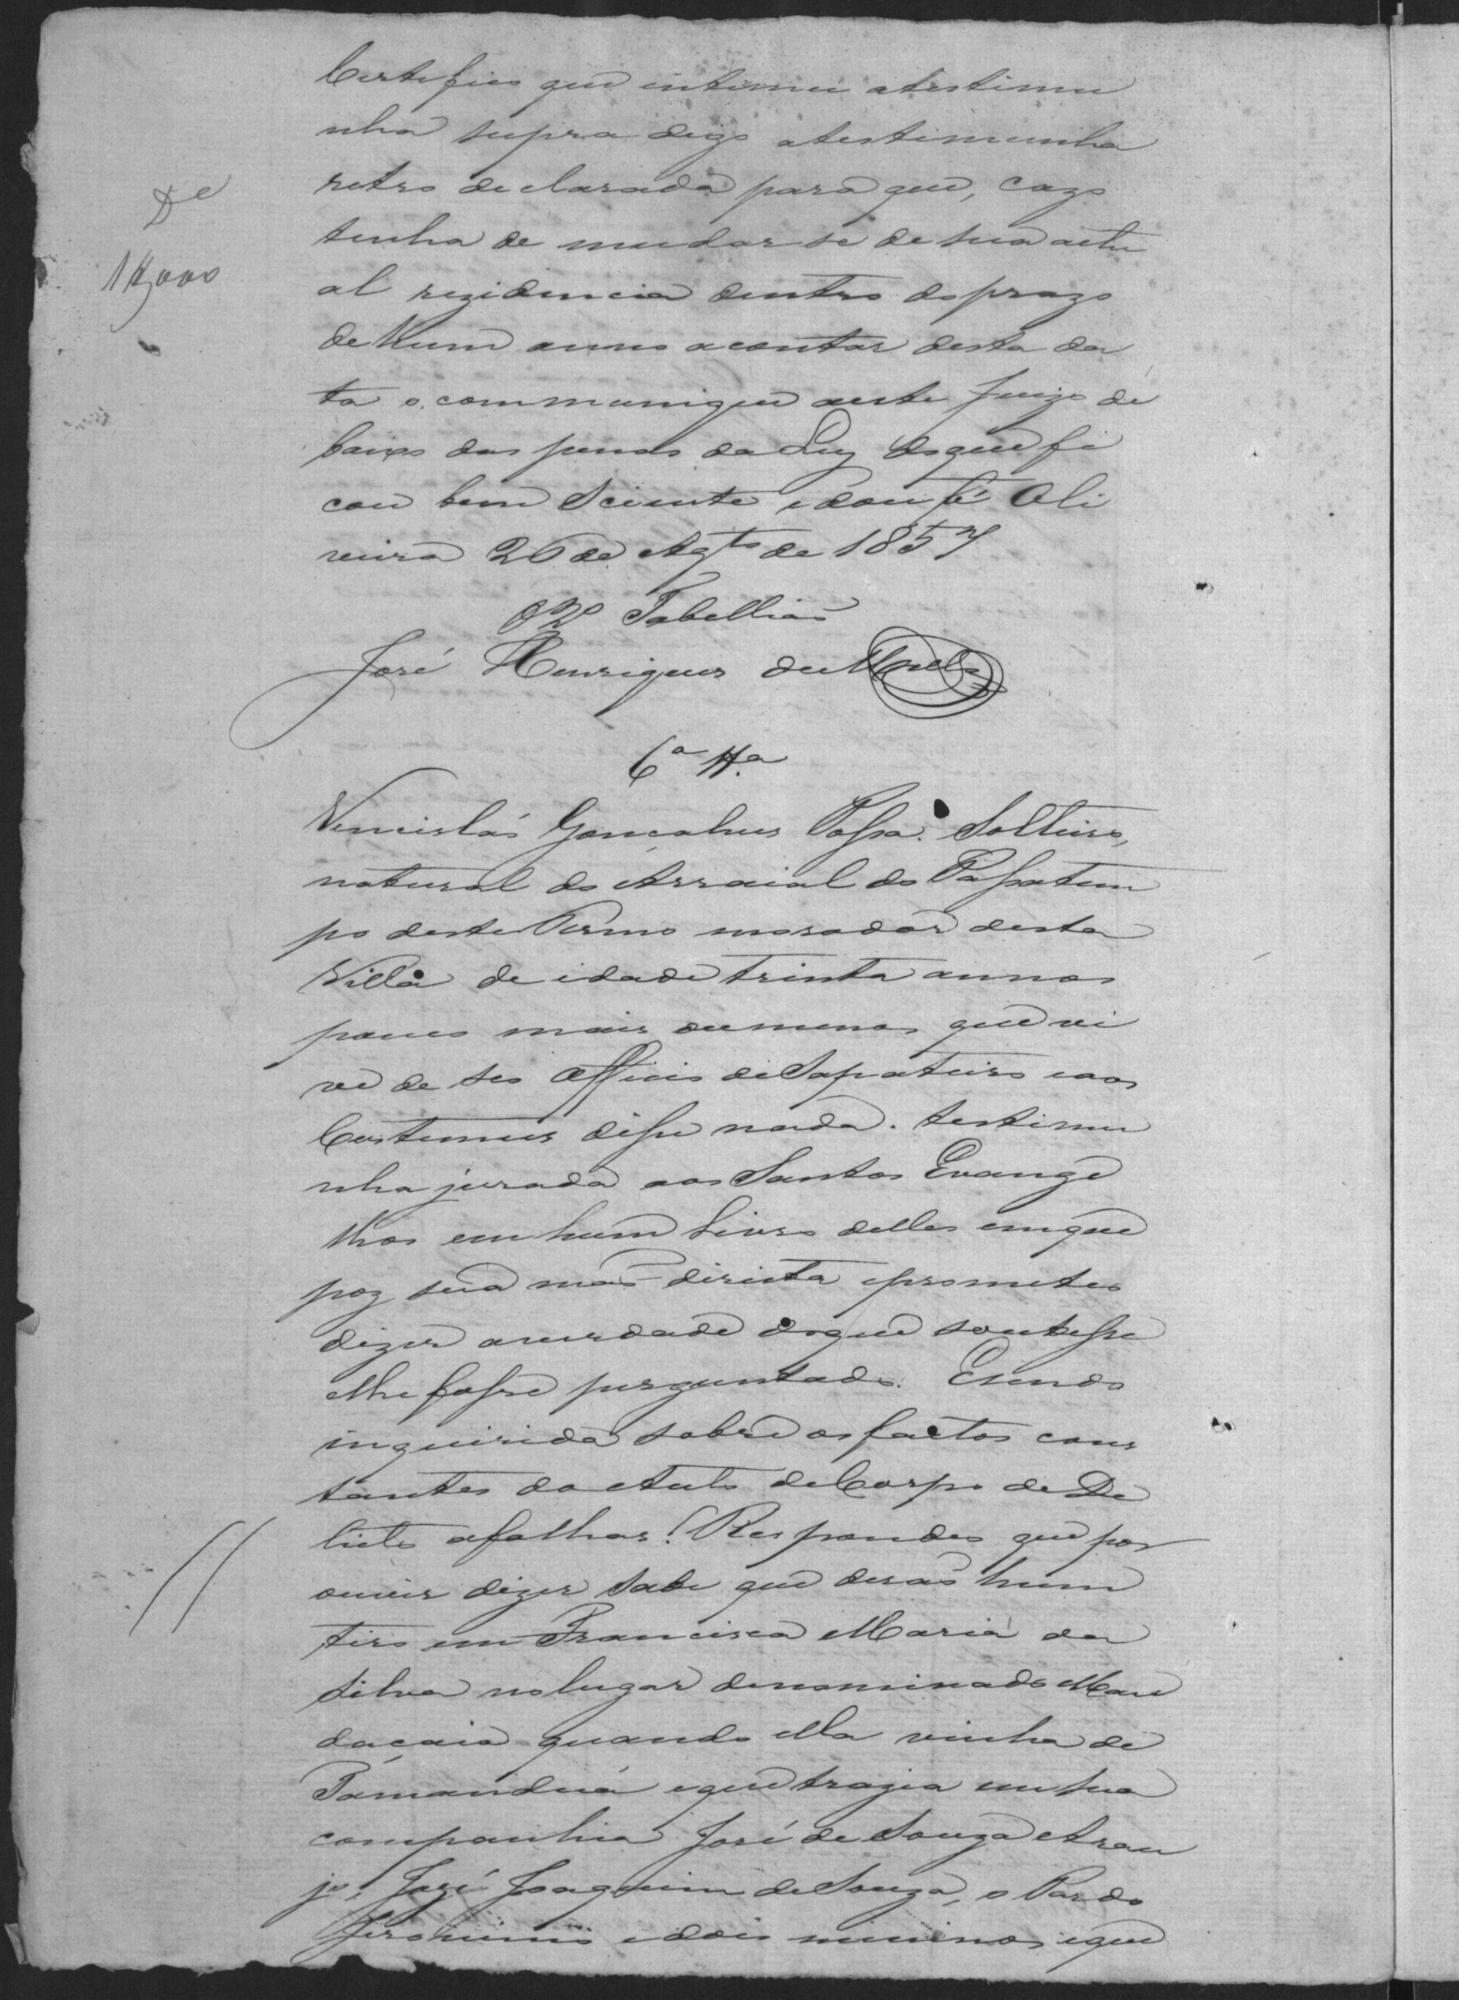 Certifico que intimei atestimu
nha supra digo atestimunha
retro declarada para que, cazo
tenha de mudar se de sua actu
al rezidencia dentro do prazo
de hum anno acontar desta da
ta o communique aeste Juizo de
baixo das penas da Ley doque fi
cou bem Sciente edou fé Oli
veira 26 de Agto de 1857
De
1$000
O 2º Tabellião
José Henriques de
6ª tta
Vencislás Gonçalves Solteiro,
natural do Arraial do Passatem
po deste Termo morador desta
Villa de idade trinta annos
pouco mais oumenos que vi
ve de seo Officio deSapateiro eaos
Costumes disse nada. testimu
nha jurada aos Santos Evange
lhos em hum Livro delles emque
poz sua mão direita eprometeo
dizer averdade doque soubesse
elhe fosse perguntado. Esendo
inquirida sobre os factos cons
tantes do Auto deCorpo de De
licto afolhas. Respondeo que por
ouvir dizer sabe que derão hum
tiro em Francisca Maria da
Silva nolugar denominado
dacaia quando ella vinha de
Tamanduá eque trazia em sua
companhia José de Souza Arau
jo, José Joaquim deSouza, o Pardo
Jeronimo edois meninos eque